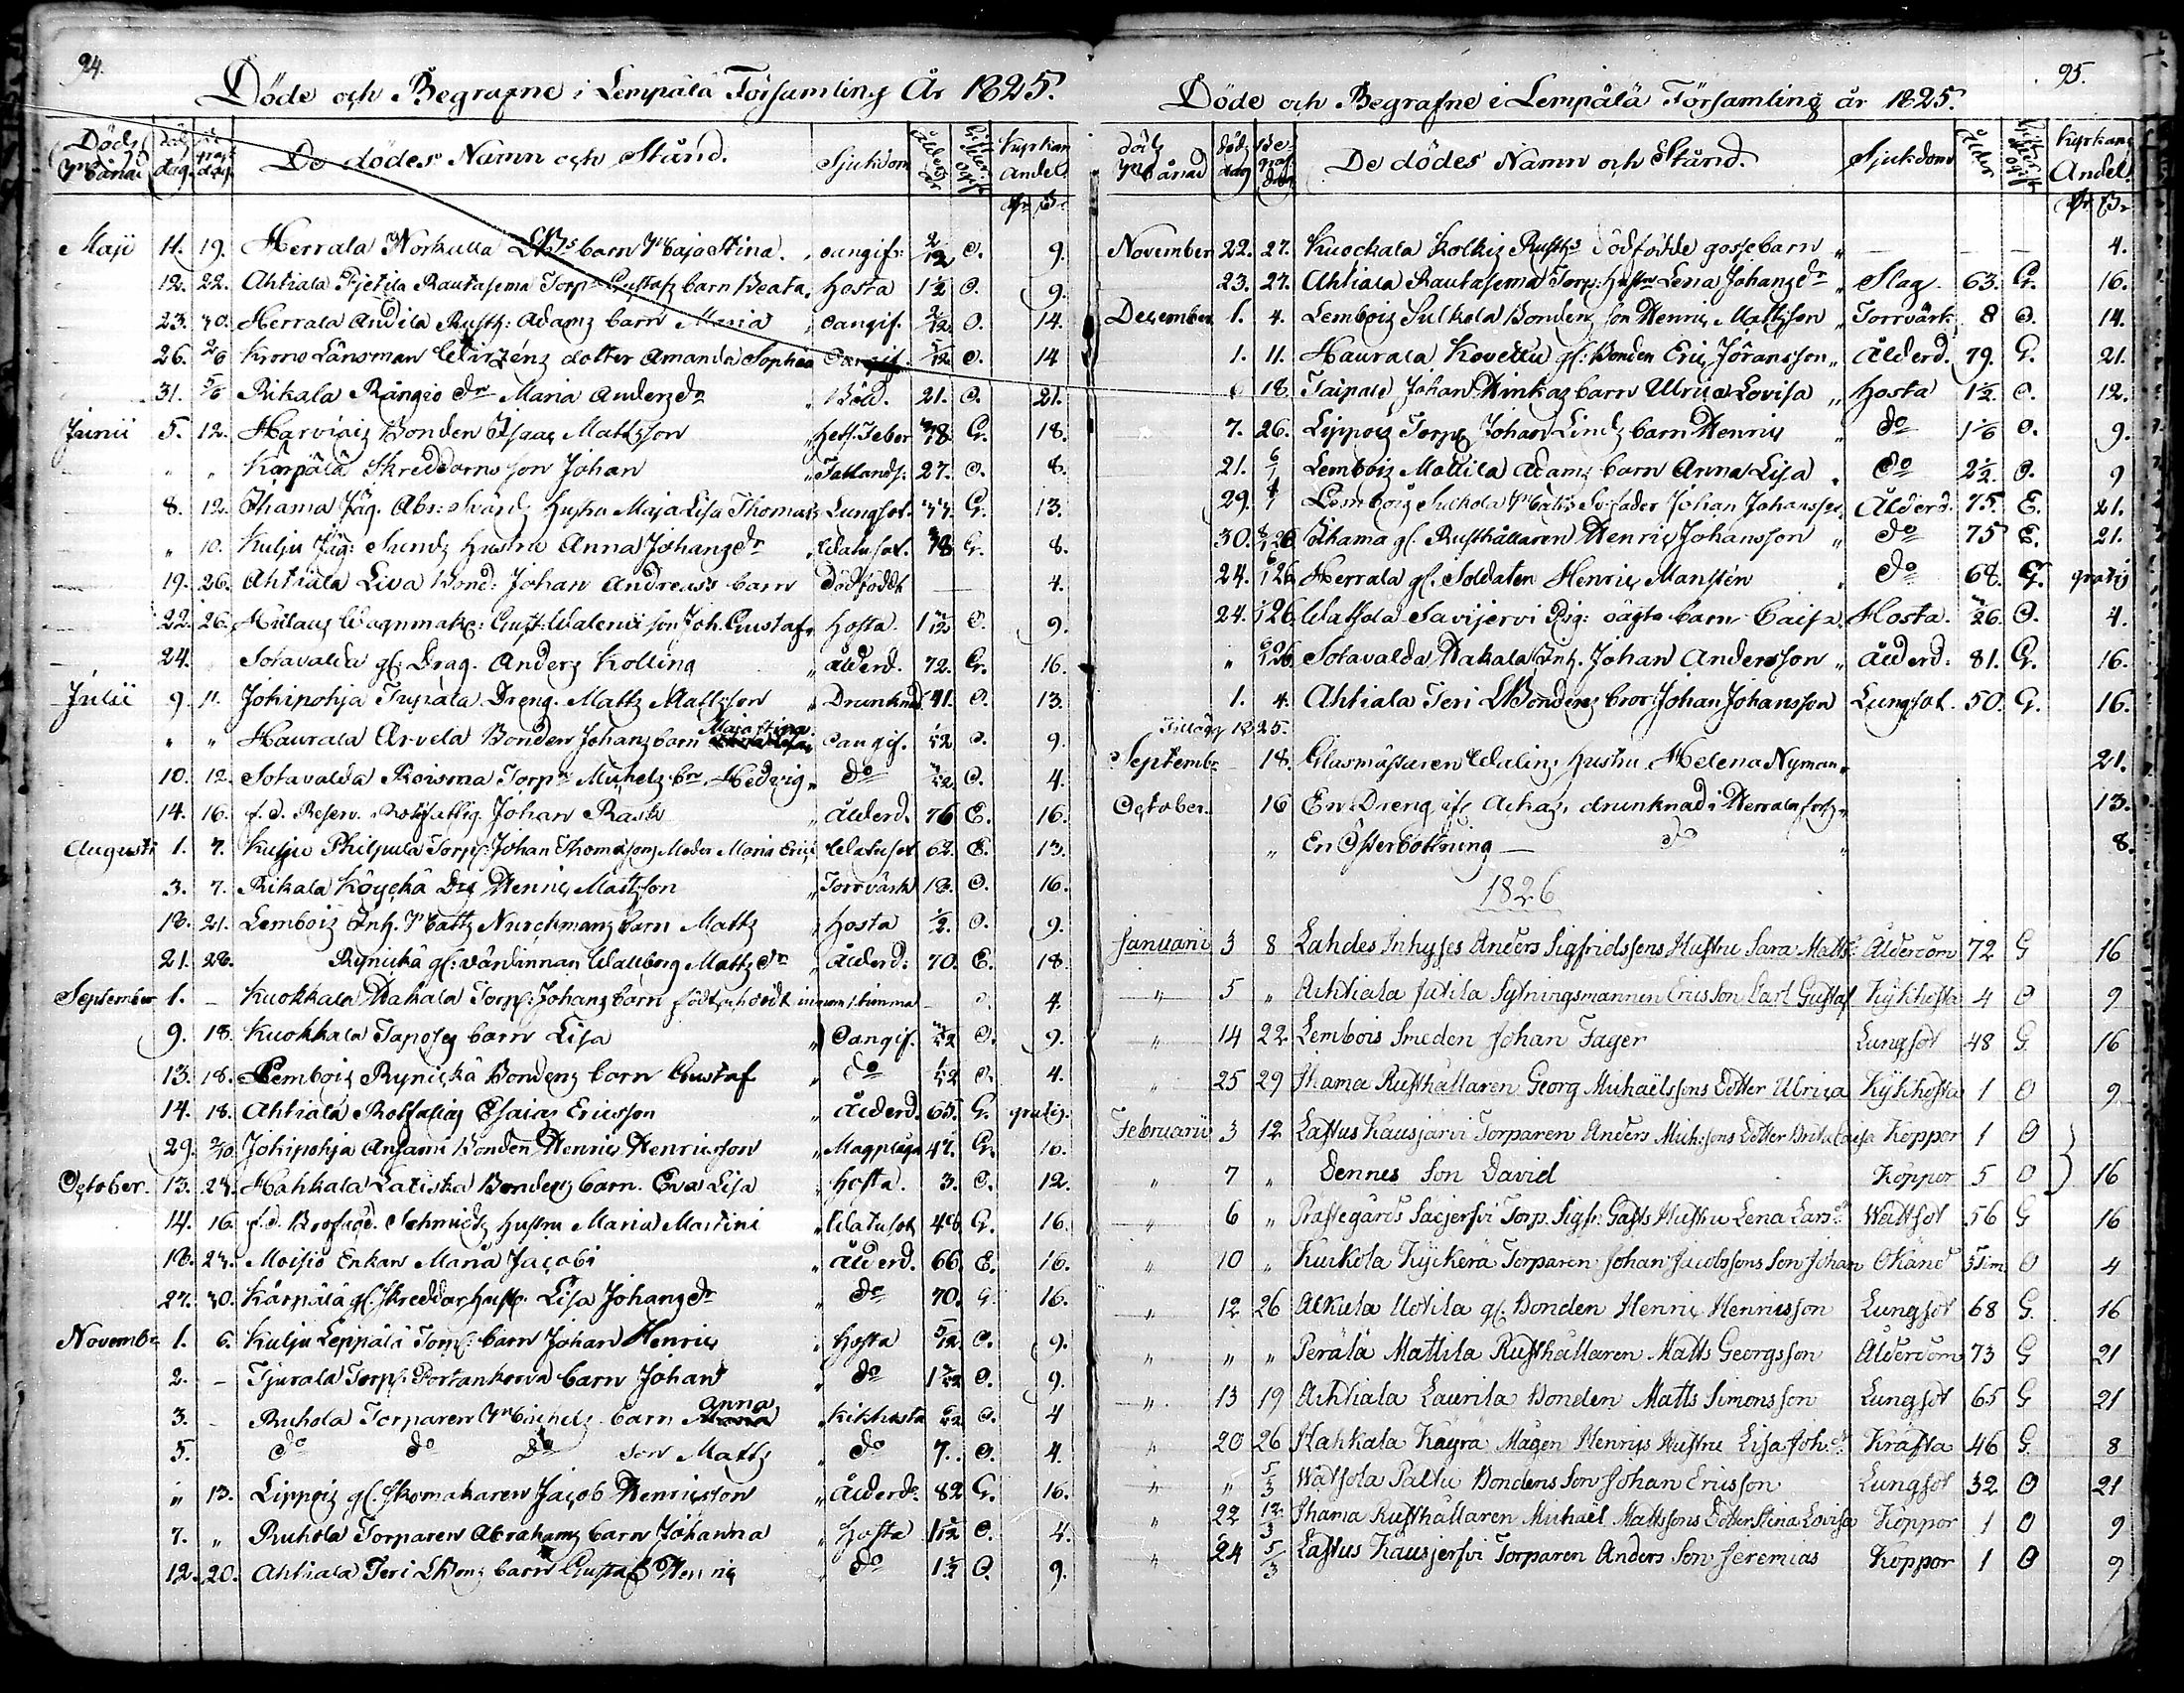 94.
Döde och Begrafne i Lempälä Församling År 1825.
Döds Månad dag De dödes Namn och Stånd. Sjukdom Ålder Kyrkans Andel
Maji 11. 19. Herrala Norkulla barn Maja Stina. oangif. 2/12 O. 9.
12. 22. Ahtiala Rautasema Torp. Gustafs barn Beata. Hosta 1½ O. 9.
23. 30. Herrala Andila Rusth: Adams barn Maria oangif. O. 14.
26. 2/6 Krono Länsman dotter Amanda Sophia O. 14
31. 5/6 Rikala Rångio Dr Maria Andersdr Böld. 21. O. 21.
Junii 5. 12. Harviais Bonden Isaac Mattsson 78 G. 18.
" " Karpälä Skreddarns son Johan Fallands. 27. O. 8.
8. 12. Thama Jäg. Abr: Svärds Hustru Maja Lisa Thomas Lungsot. G. 13.
" 10. Kulju Jäg: Sunds Hustru Anna Johansdr Watusot. G. 8.
19. 26. Ahtiala Liva Bond: Johan Andreas's barn Dödfödt — 4.
22. 26. Wagnmak: Gust. Walenii son Joh. Gustaf. Hosta. O. 9.
24. " Sotavalda gl: Drag. Anders Kolling ålderd. 72. G. 16.
Julii 9 11. Jokipohja Tupala Dreng. Matts Mattsson Drunknad. 41. O. 13.
" " Haurala Arvela Bonden Johans barn Maja Stina oangif. O. 9.
10. 12. Sotavalda Roisma Torp. Michels br Hedvig do O. 4.
14. 16. f. d. Reserv. Rotfallig Johan Rask ålderd. 76 E. 16.
Augusti 1. 7. Kulju Philpula Torp: Johan Thomassons Moder Maria Erics Watusot 62. E. 13.
3. 7. Rikala Köyckä Drg Henric Mattsson Torrvärk 18. O. 16.
18. 21. Lembois Inh. Matts Nurckmans barn Matts Hosta ½. O. 9.
21. 28. Rynickä gl: värdinnan Walborg Mattsdr Ålderd: 70. E. 18
September 1. — Kuokkala Hakala Torp: Johans barn födt och dödt innom 1 timma — O. 4.
9. 18. Kuokkala Taposes barn Lisa Oangif. O. 9.
13. 18. Lembois Rynickä Bondens barn Gustaf do O. 4.
14. 18. Ahtiala Rotfallig Esaias Ericsson Ålderd. 65. G. gratis.
29. 2/10. Jokipohja Ansami Bonden Henric Henricsson Magplåga 47. G. 16.
October. 13. 23. Hahkala Latiska Bondens barn. Eva Lisa Hosta. 3. O. 12.
14. 16. f. d. Brofogd. Schmidts Hustru Maria Martini Watusot 48 G. 16.
18. 23. Moisio Enkan Maria Jacobi ålderd. 66. E. 16.
27. 30. Kärpälä gl. Skreddar Hust: Lisa Johansdr do 70. G. 16.
Novemb. 1. 6. Kulju Leppälä Torp: barn Johan Henric Hosta 5/12. O. 9.
2. — Tjurala Torp: Portankorva barn Johan do O. 9.
3. — Ruhola Torparen Michels barn Anna Kikhosta O. 4
5. do do do son Matts do 7. O. 4.
" 13. Lippois gl. Skomakaren Jacob Henricsson Ålderd. 82 G. 16.
7. " Ruhola Torparen Abrahams barn Johanna Hosta O. 4.
12. 20. Ahtiala Teri barn Gustaf Henric do O. 9.
95.
Döde och Begrafne i Lempälä Församling år 1825.
Döds Månad död dag Begraf. dag De dödes Namn och Stånd. Sjukdom Ålder Kyrkans Andel.
November 22. 27. Kuockala Kolkis Rusth: Dödfödde gossebarn — — 4.
23. 27. Ahtiala Rautasema Torp: Hustru Lena Johansdr Slag. 63. G. 16.
December 1. 4. Lembois Sulkola Bondens son Henric Mattsson Torrvärk 8 O. 14.
1. 11. Haurala Kovella gl: Bonden Eric Jöransson Ålderd. 79. G. 21.
18. Taipale Johan Hinkas barn Ulrica Lovisa Hosta 1½. O. 12.
7. 26. Lippois Torp: Johan Linds barn Henric do O. 9.
21. 6/1 Lembois Mattila Adams barn Anna Lisa do 2½. O. 9
29. Lembois Sulkola Matts Svifader Johan Johansson Ålderd. 75. E. 21.
30. Thama gl. Rusthållaren Henric Johansson do 75 E. 21.
24. Herrala gl. Soldaten Henric Manstén do 68. G. gratis
24. Watsola Savijervi Pig: oägta barn Caisa. Hosta. O. 4.
" Sotavalda Hakala Inh. Johan Andersson ålderd. 81. G. 16.
1. 4. Ahtiala Teri Bondens bror Johan Johansson Lungsot. 50. G. 16.
Tillägg 1825.
Septemb. 18. Glasmästaren Walins Hustru Helena Nyman 21.
October. 16 En Dreng drunknad i Herrala fors 13.
" En Österbottning — do 8.
1826
Januarii 3 8 Lahdes Inhyses Anders Sigfridssons Hustru Sara Mattsd. Ålderdom 72 G 16
" 5 " Ahtiala Jutila Sytningsmannen Erics Son Carl Gustaf Kykhosta 4 O 9
" 14 22 Lembois Smeden Johan Fager Lungsot 48 G 16
" 25 29 Thama Rusthållaren Georg Michaëlssons Dotter Ulrica Kykhosta 1 O 9
Februarii 3 12 Lastus Kausjärvi Torparen Anders Mich:sons Dotter Brita Caisa Koppor 1 O
" 7 " Dennes Son David Koppor 5 O 16
" 6 " Prästegårds Saejersvi Torp. Sigfr: Gasts Hustru Lena Larsdr Wattsot 56 G 16
" 10 " Kurkola Kyckerä Torparen Johan Jacobssons Son Johan Okänd 5 tim O 4
" 12 26 Alkula Uotila gl. Bonden Henric Henricsson Lungsot 68 G 16
" " " Perälä Mattila Rusthållaren Matts Georgsson Ålderdom 73 G 21
" 13 19 Ahtiala Laurila Bonden Matts Simonsson Lungsot 65 G 21
" 20 26 Hahkala Käyrä Mågen Henrys Hustru Lisa Joh:dr Kräfta 46 G 8
" " 5/3 Watsola Paltu Bondens Son Johan Ericsson Lungsot 32 O 21
" 22 12/3 Thama Rusthållaren Michaël Mattssons Dotter Stina Lovisa Koppor 1 O 9
" 24 5/3 Lastus Kausjersvi Torparen Anders Son Jeremias Koppor 1 O 9